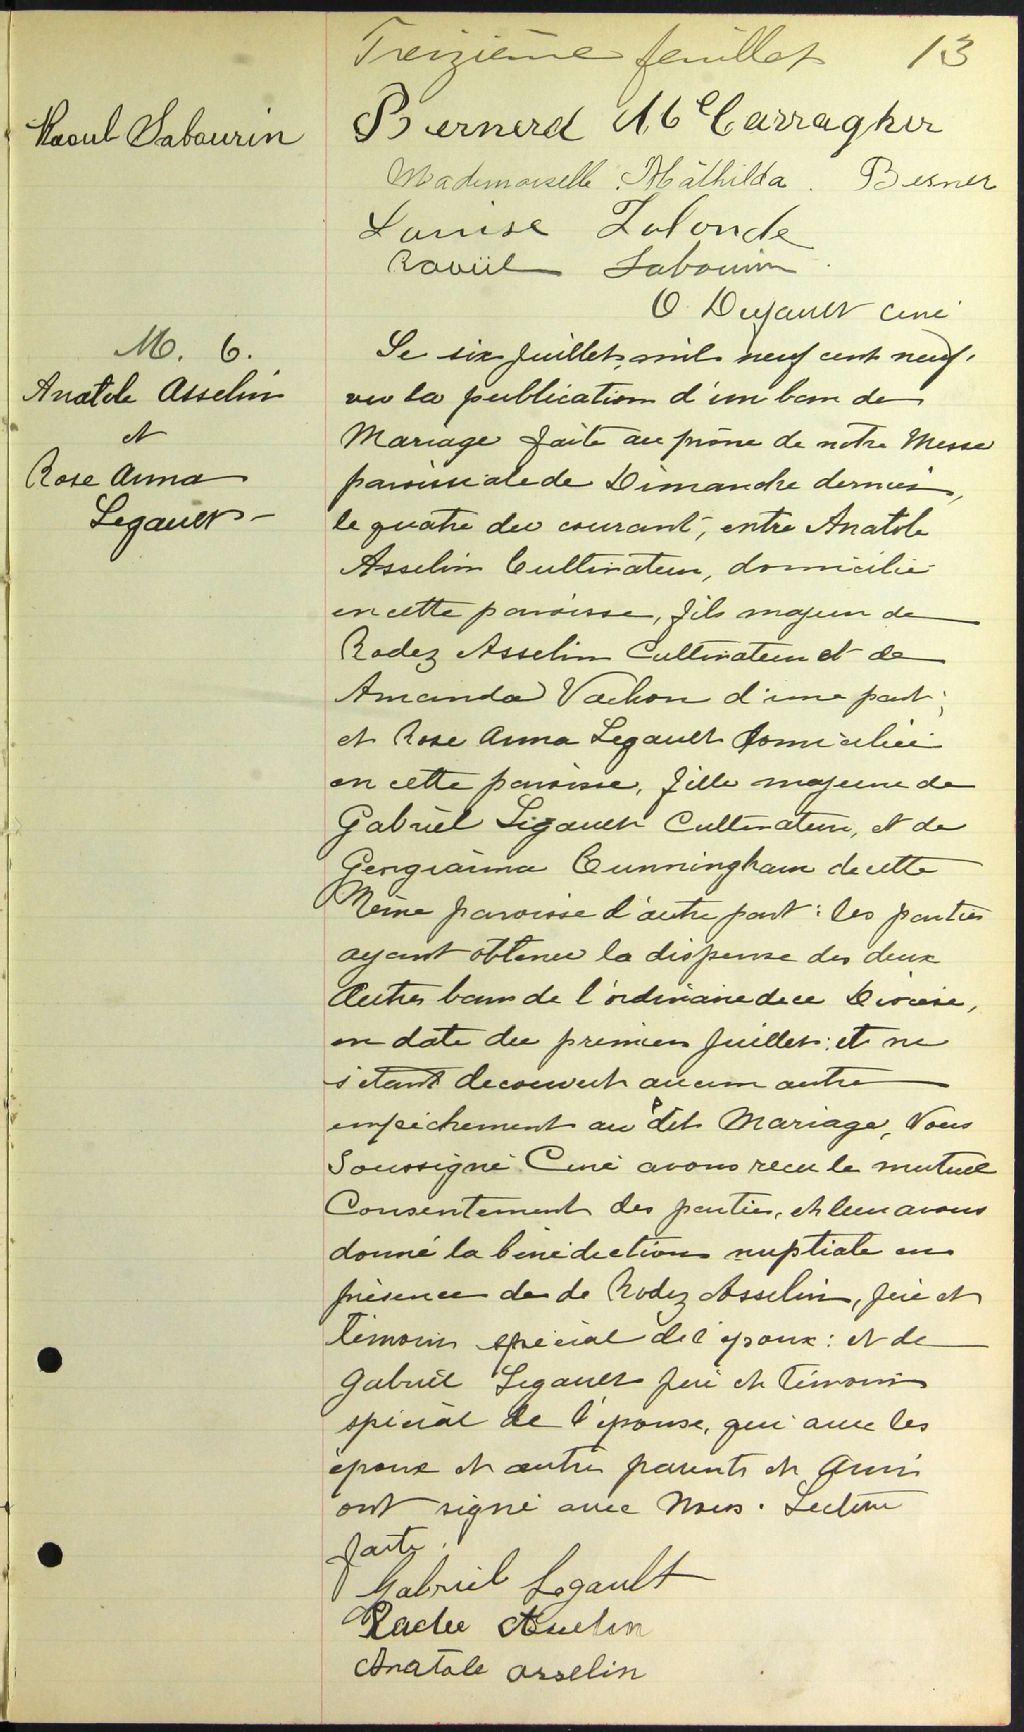 Treizième feuillet 13
Raoul Sabourin
Bernerd McCarragher
Mademoiselle Mathilda Berner
Louise Lalonde
Raoul Sabourin
O Dufault curé
M. 6.
Anatole Asselin
et
Rose Anna
Legault
Le six Juillet mil neuf cent neuf,
vu la publication d'un ban de
Mariage faite au prône de notre Messe
paroissiale de Dimanche dernier,
le quatre du courant, entre Anatole
Asselin Cultivateur, domicilié
en cette paroisse, fils majeur de
Rodez Asselin Cultivateur et de
Amanda Vachon d'une part;
et Rose Anna Legault domiciliée
en cette paroisse, fille majeure de
Gabriel Legault Cultivateur, et de
Georgianna Cunningham de cette
Même paroisse d'autre part: les parties
ayant obtenu la dispense des deux
Autres bans de l'ordinaire de ce Diocèse,
en date du premier Juillet: et ne
s'étant découvert aucun autre
empêchement au dit Mariage, Nous
Soussigné Curé avons reçu le mutuel
Consentement des parties, et leur avons
donné la bénédiction nuptiale en
présence de de Rodez Asselin, père et
témoin spécial de l'époux: et de
Gabriel Legault père et témoin
spécial de l'épouse, qui avec les
époux et autres parents et Amis
ont signé avec Nous. Lecture
faite.
Gabriel Legault
Asselin
Anatole asselin